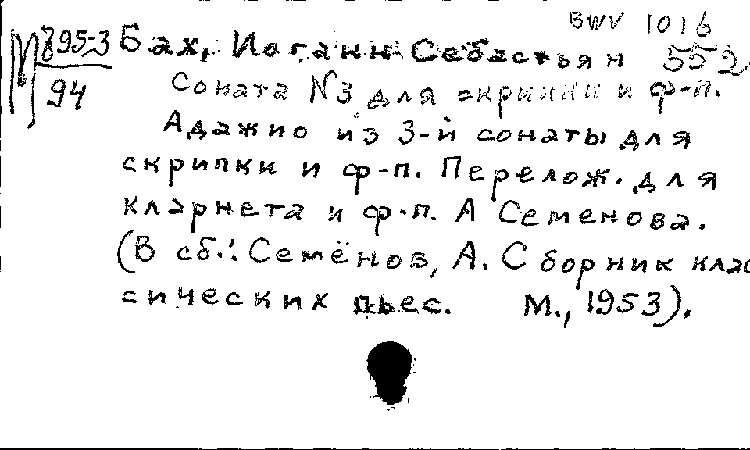 BWV 1016
М 395-3 Бах, Иоганн Себастьян 552
94 Соната N3 для скрипки и ф-п.
Адажио из 3-й сонаты для
скрипки и ф-п. Перелож. для
кларнета и ф-п. А Семенова.
(В сб.: Семёнов, А. Сборник клас
сических пьес. М., 1953).